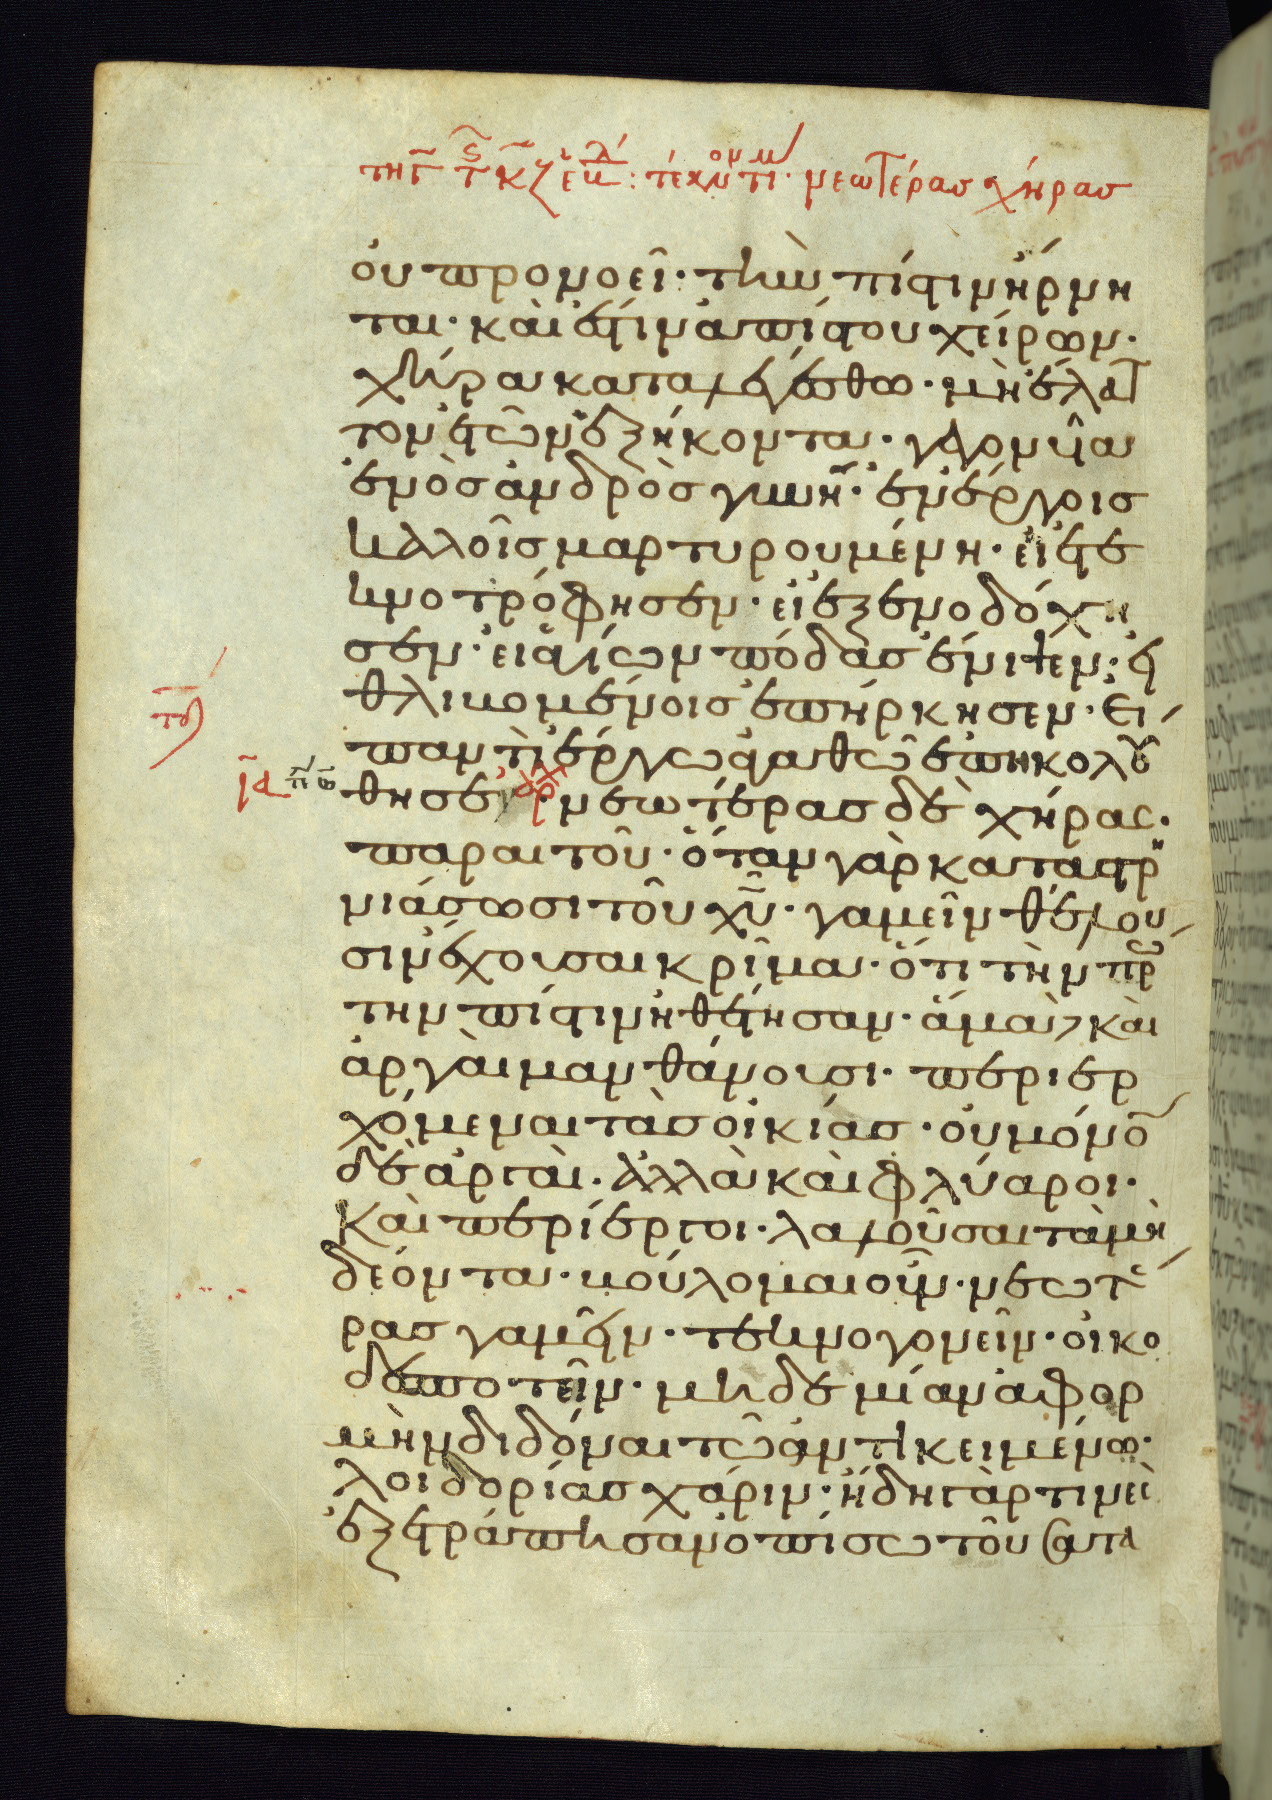 τῆ γ τ κζ εβ : τέκνον τι νεωτέρας χήρας
οὐ προνοεῖ· τὴν πίστιν ἤρνη
ται· καὶ ἔστιν ἀπίστου χείρων·
χήρα καταλεγέσθω· μὴ ἔλατ
τον ἐτῶν ἑξήκοντα· γεγονυῖα
ἑνὸς ἀνδρὸς γυνή· ἐν ἔργοις
καλοῖς μαρτυρουμένη· εἰ ἐτε
κνοτρόφησεν· εἰ ἐξενοδόχη
σεν· εἰ ἁγίων πόδας ἔνιψεν· εἰ
θλιβομένοις ἐπήρκησεν· εἰ
παντὶ ἔργω ἀγαθῶ ἐπηκολού
θησε· νεωτέρας δὲ χήρας·
παραιτοῦ· ὅταν γὰρ καταστρη
νιάσωσι τοῦ χυ· γαμεῖν θέλου
σιν ἔχουσαι κρῖμα· ὅτι τὴν πρω
την πίστιν ἠθέτησαν· ἅμα δὲ καὶ
ἀργαὶ μανθάνουσι· περιερ
χόμεναι τὰς οἰκίας· οὐ μόνον
δὲ ἀργαὶ· ἀλλὰ καὶ φλύαροι·
καὶ περίεργοι· λαλοῦσαι τὰ μὴ
δέοντα· βούλομαι οὖν· νεωτέ
ρας γαμεῖν· τεκνογονεῖν· οἰκο
δεσποτεῖν· μηδεμίαν ἀφορ
μὴν διδόναι τῶ ἀντικειμένω·
λοιδορίας χάριν· ἤδη γάρ τινες
ἐξετράπησαν ὀπίσω τοῦ σατα